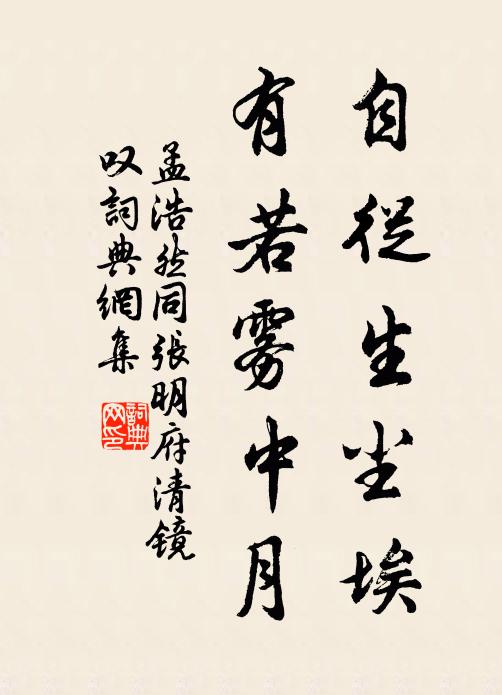 自從生尘埃
有若雾中月
孟浩然同張明府清镜
叹詞典網集
詞典网印